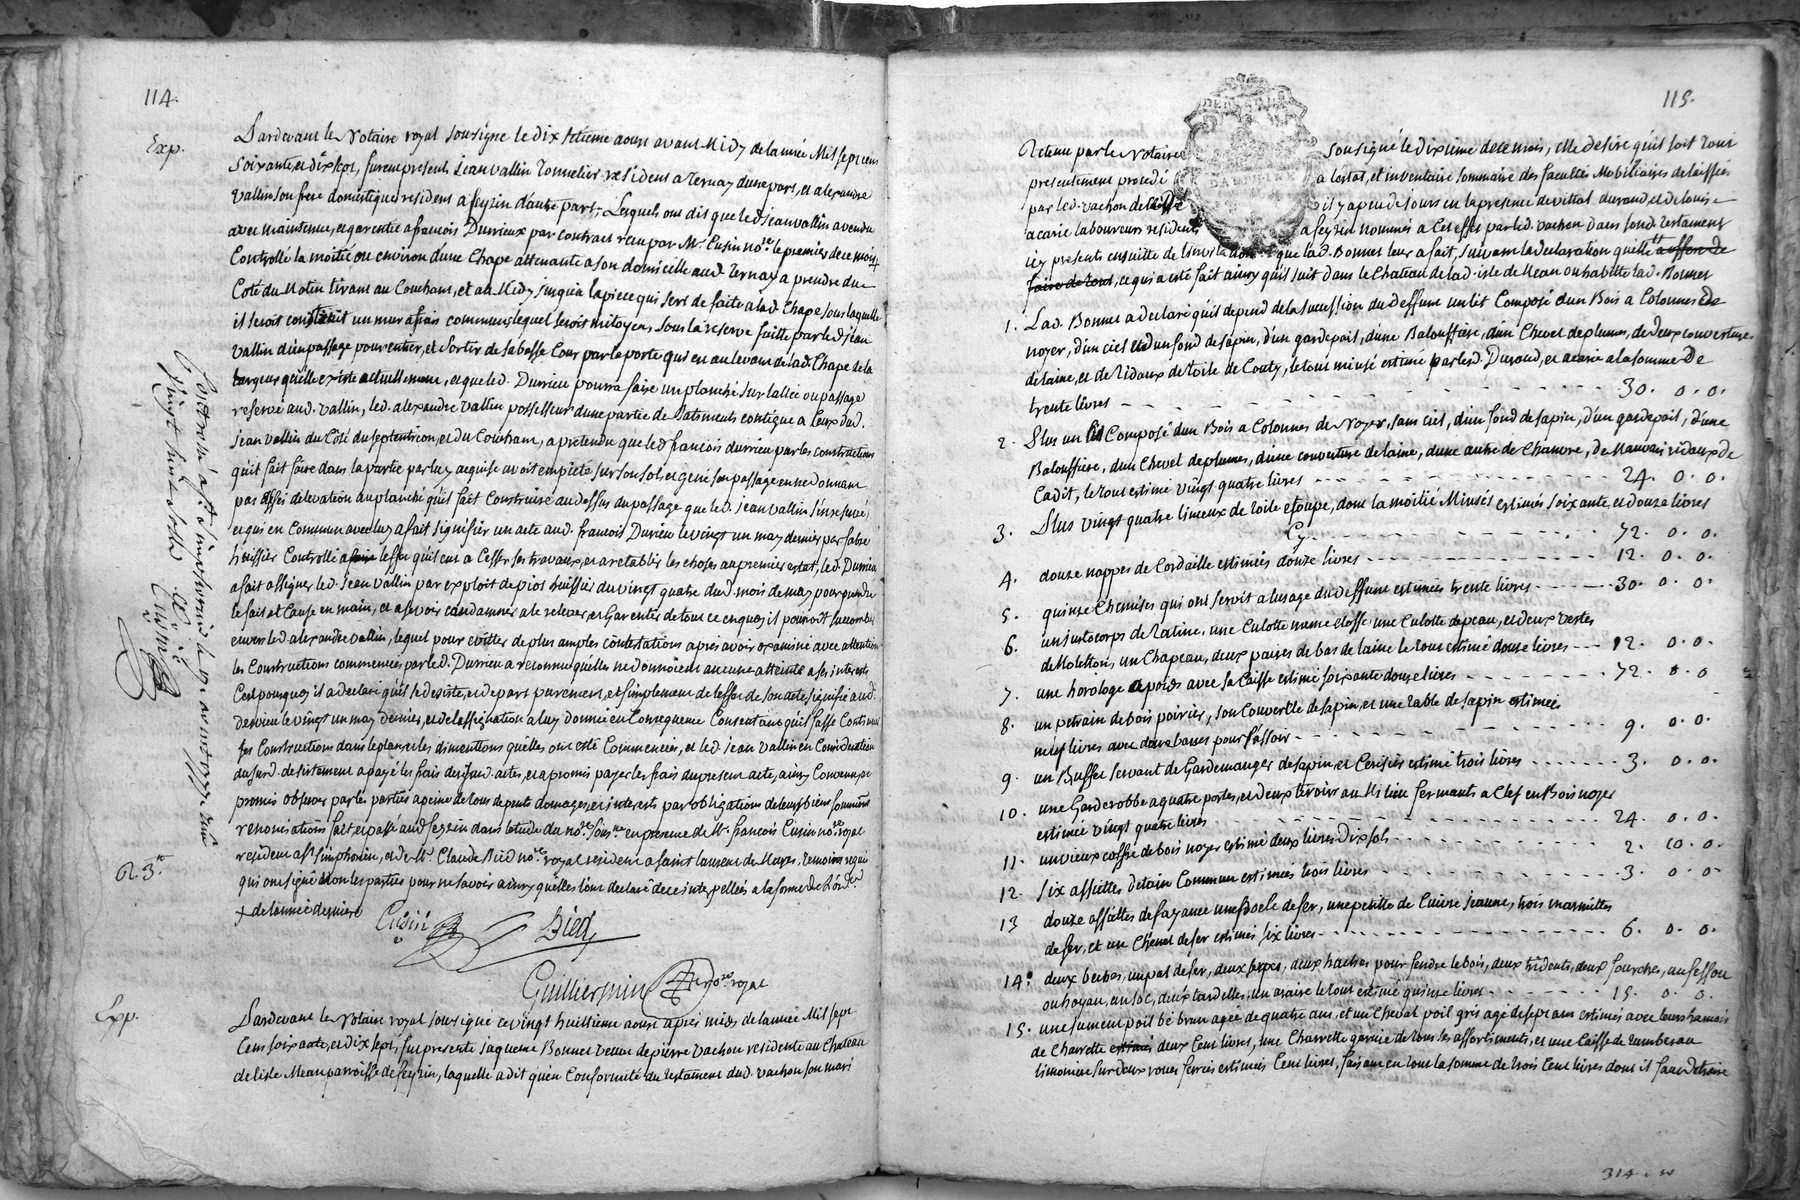 114.
Exp.
Pardevant le Notaire royal soussigné le dix septieme aoust avant Midy de lannée Mil sept cent
soixante et dix sept, furent presents Jean vallin Tonnelier resident a Ternay d'une part, et alexandre
vallin son frere domestique resident a feyzin d'autre part; Lesquels ont dit que led. jean vallin a vendu
avec maintenue, et garentie a francois Durrieux par contract recu par Mr. Cusin nore. le premier de ce mois +
Controllé la moitié ou environ d'une Chape attenante a son domicille aud. Ternay a prendre du
Coté du Matin tirant au Couchant, et au Midy jusqu'a la piece qui sert de faite a lad. Chape sous laquelle
il seroit construit un mur a frais communs, lequel seroit mitoyen, sous la reserve faitte par led. jean
vallin d'un passage pour entrer, et sortir de sa basse Cour par la porte qui est au levant de lad. Chape de la
largeur qu'elle existe actuellement, et que led. Durrieu pourra faire un planché sur lallée ou passage
reservé aud. vallin, led. alexandre vallin possesseur d'une partie de Batiments contigue a ceux dud.
jean vallin du Coté du septentrion, et du Couchant, a pretendu que led. francois durrieu par les constructions
qu'il fait faire dans la partie par luy acquise avoit empieté sur son sol, et gené son passage en ne donnant
pas assés d'elevation au planché qu'il fait construire au dessus du passage que led. jean vallin s'est reservé,
et qui est Commun avec luy a fait signifier un acte aud. francois Durieu le vingt un may dernier par fabre
huissier Controllé a leffet qu'il eut a Cesser ses travaux, et a retablir les choses au premier estat, led. Durrieu
a fait assigner led. jean vallin par exploit de pios huissier du vingt quatre dud. mois de may pour prendre
le fait et Cause en main, et a se voir condamner a le relever, et Garentir de tout ce en quoy il pourroit succomber
envers led. alexandre vallin, lequel pour eviter de plus amples contestations apres avoir examiné avec attention
les Constructions commencées par led. Durrieu a reconnu qu'elles ne donnoient aucune atteinte a ses interests
C'est pourquoy il a declaré qu'il se desiste, et depart purement, et simplement de leffet de son acte signifié aud.
derrieu le vingt un may dernier, et de lassignation a luy donnée en Consequence Consentant qu'il fasse Continuer
ses Constructions dans le plan et les dimentions qu'elles ont esté Commencées, et led. jean vallin en Consideration
du susd. desistement a payé les frais des susd. actes, et a promis payer les frais du present acte, ainsy Convenu et
promis observer par les parties a peine de tous depents domages, et interests par obligations de leurs biens soumissions
renonciations fait et passé aud. feyzin dans letude du nore. sousné. en presence de Mr. francois Cusin nore. royal
resident a St. simphorien, et de Mr. Claude Bied nore. royal resident a saint laurent de Mures, temoins requis
qui ont signé non les parties pour ne savoir ainsy qu'elles l'ont declaré de ce interpellées a la forme de l'ordce.
+ de l'année derniere
Cusin Bied
Guilliermin nore. royal
R. 3.
Exp.
Pardevant le Notaire royal soussigné ce vingt huitieme aoust apres midy de lannée Mil sept
Cent soixante, et dix sept, fut presente jaqueme Bonnet veuve de pierre vachon residente au Chateau
de lisle Mean parroisse de feyzin, laquelle a dit qu'en Conformité du Testament dud. vachon son mari
115.
DAUPHINÉ
Retenu par le Notaire soussigné le dixieme de ce mois, elle desire qu'il soit tout
presentement procedé a lestat, et inventaire sommaire des facultés Mobiliaires delaissées
par led. vachon decedé il y a peu de jours en la presence de vittal durand, et de louis
acarie laboureurs residents a feyzin nommés a cet effet par led. vachon dans sond. testament
icy presents ensuitte de que lad. Bonnet leur a fait, suivant la declaration qu'elle a offert de
faire de tout, ce qui a eté fait ainsy qu'il suit dans le Chateau de lad. isle de Mean ou habitte lad. Bonnet
1. Lad. Bonnet a declaré qu'il depend de la succession du deffunt un lit Composé d'un Bois a Colonnes de
noyer, d'un ciel et d'un fond de sapin, d'un gardepail, d'une Balouffiere, d'un Chevet de plumes, de deux couvertures
de laine, et de Ridaux de toile de Couty, le tout mi usé estimé par lesd. Durand, et acarie a la somme de
trente livres 30. 0. 0.
2. Plus un lit Composé d'un Bois a Colonnes de Noyer, sans ciel, d'un fond de sapin, d'un gardepail, d'une
Balouffiere, d'un Chevet de plumes, d'une couverture de laine, d'une autre de Chanvre, de Mauvais ridaux de
Cadit, le tout estimé vingt quatre livres 24. 0. 0.
3. Plus vingt quatre linceux de toile etoupe, dont la moitié Miusés estimés soixante, et douze livres
Cy 72. 0. 0.
4. douze nappes de Cordaille estimées douze livres 12. 0. 0.
5. quinse Chemises qui ont servit a lusage du deffunt estimées trente livres 30. 0. 0.
6. un justocorps de Ratine, une Culotte meme etoffe une Culotte de peau, et deux vestes
de Moletton, un Chapeau, deux paires de bas de laine le tout estimé douse livres 12. 0. 0.
7. une horologe a poids avec sa Caisse estimé soixante douse livres 72. 0. 0
8. un petrain de bois poirier, son Couvercle de sapin, et une table de sapin estimées
neuf livres avec deux basses pour sassoir 9. 0. 0.
9. un Buffet servant de Gardemanger de sapin, et Cerisier estimé trois livres 3. 0. 0.
10. une Garderobbe a quatre portes, et deux tiroirs au Milieu fermants a Clef en Bois noyer
estimée vingt quatre livres 24. 0. 0.
11. un vieux coffre de bois noyer estimé deux livres dix sols 2. 10. 0.
12. Six assiettes detain Commun estimées trois livres 3. 0. 0.
13 douze assiettes de fayance une Poele de fer, une petitte de Cuivre jeaune, trois marmittes
de fer, et un Chenet de fer estimés six livres 6. 0. 0.
14. deux beches, un pal de fer, deux serpes, deux haches pour fendre le bois, deux tridents, deux fourches, un fessou
ou hoyau, un soc, deux tardelles, un araire le tout estimé quinse livres 15. 0. 0.
15. une jument poil bé brun agée de quatre ans, et un Cheval poil gris agé de sept ans estimés avec leurs harnois
de Charrette deux Cent livres, une Charrette garnie de tous ses assortiments, et une Caisse de tumbereau
limoniere sur deux roues ferrées estimées Cent livres, faisant en tout la somme de trois Cent livres dont il faut distraire
314. 10